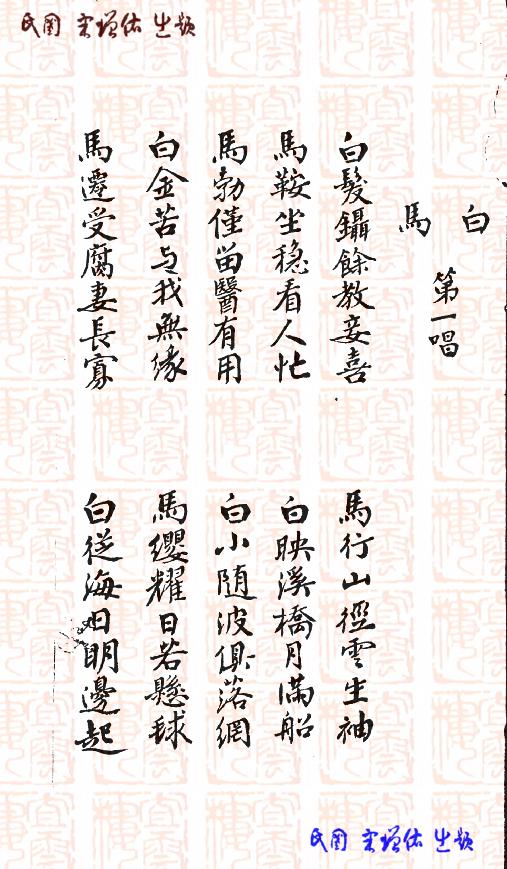 民国 宋增佑 出题
白 馬
第一唱
白髮鑷餘教妾喜
馬行山徑雲生袖
馬鞍坐穩看人忙
白映溪橋月滿船
馬勃僅留醫有用
白小随波俱落網
白金苦与我無缘
馬纓耀日若懸球
馬遷受腐妻長寡
白從海日明邊起
民国 宋增佑 出题